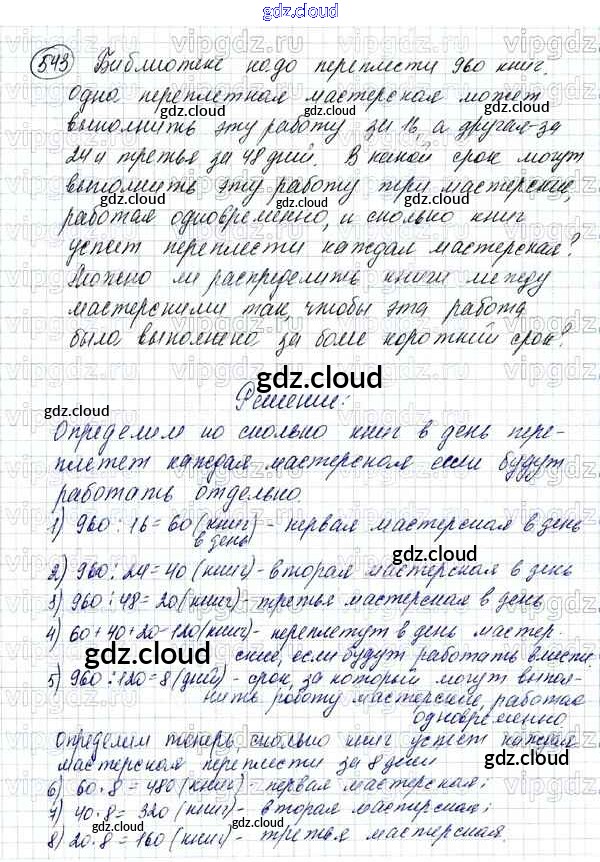 gdz.cloud
543 Библиотеке надо переплести 960 книг.
Одна переплетная мастерская может
выполнить эту работу за 16, а другая-за
24 и третья за 48 дней. В какой срок могут
выполнить эту работу три мастерские,
работая одновременно, и сколько книг
успеет переплести каждая мастерская?
Можно ли распределить книги между
мастерскими так, чтобы эта работа
была выполнена за более короткий срок?
Решение:
Определим по сколько книг в день пере-
плетет каждая мастерская если будут
работать отдельно.
1) 960 : 16 = 60 (книг) - первая мастерская в день
в день
2) 960 : 24 = 40 (книг) - вторая мастерская в день
3) 960 : 48 = 20 (книг) - третья мастерская в день
4) 60+40+20=120 (книг) - переплетут в день мастер.
ские, если будут работать вместе.
5) 960 : 120 = 8 (дней) - срок, за который могут выпол-
нить работу мастерские, работая
одновременно
Определим теперь, сколько книг успеет каждая
мастерская переплести за 8 дней
6) 60 · 8 = 480 (книг) - первая мастерская;
7) 40 · 8 = 320 (книг) - вторая мастерская;
8) 20 · 8 = 160 (книг) - третья мастерская.